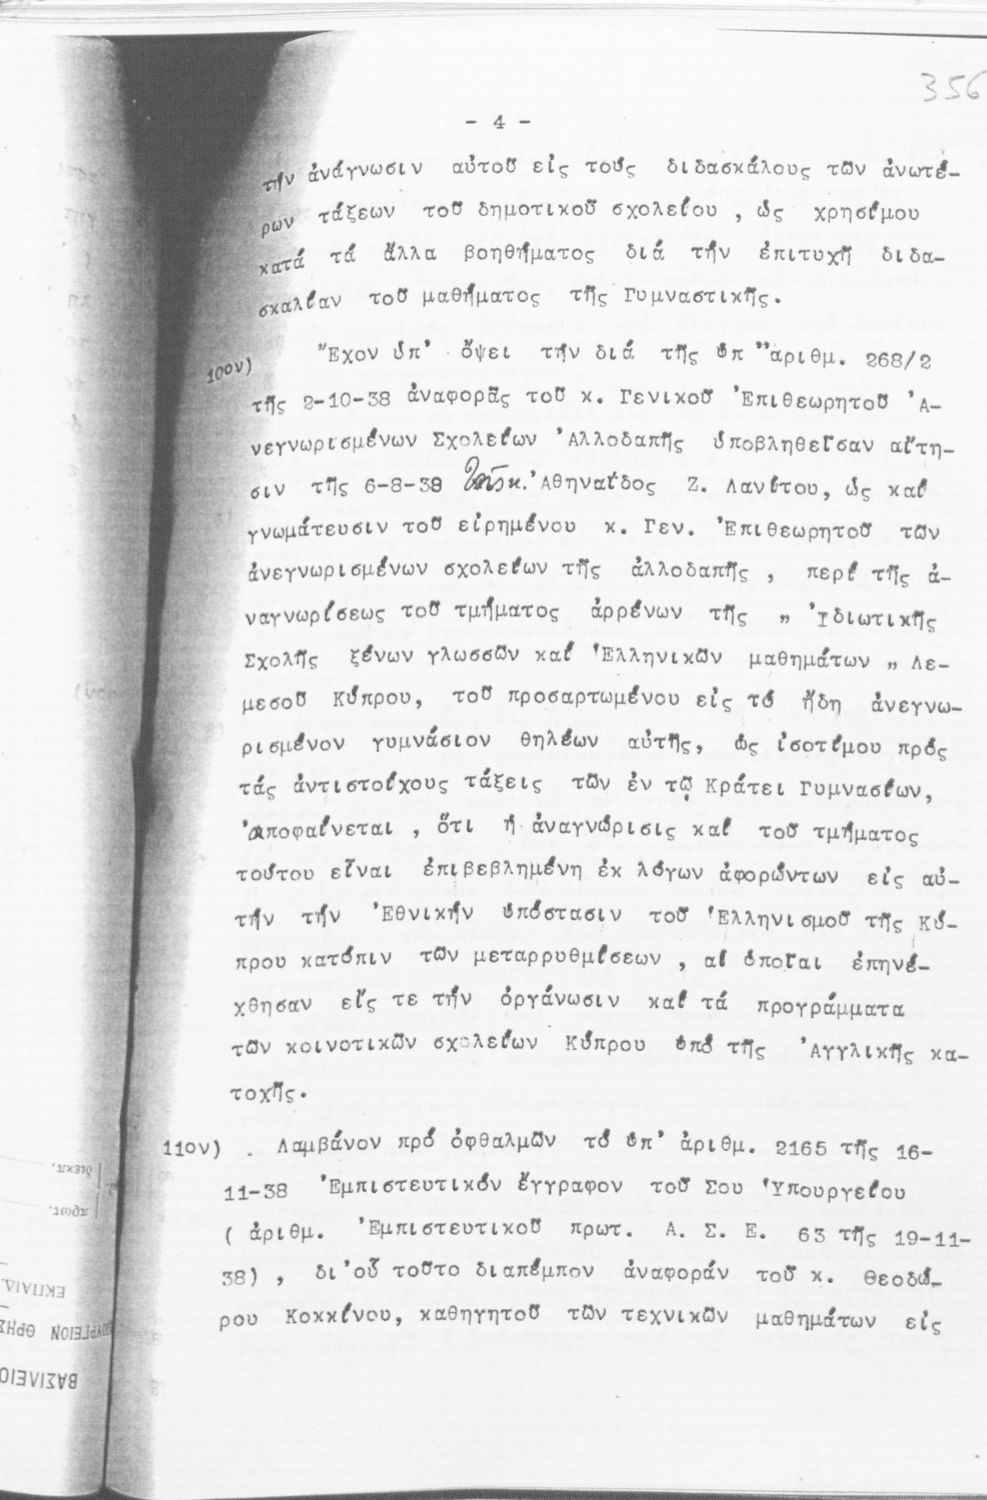 356
- 4 -
τήν ἀνάγνωσιν αὐτοῦ εἰς τούς διδασκάλους τῶν ἀνωτέ-
ρων τάξεων τοῦ δημοτικοῦ σχολείου , ὡς χρησίμου
κατά τά ἄλλα βοηθήματος διά τήν ἐπιτυχῆ διδα-
σκαλίαν τοῦ μαθήματος τῆς Γυμναστικῆς.
10ον) Ἔχον ὑπ' ὄψει τήν διά τῆς ὑπ "ἀριθμ. 268/2
τῆς 2-10-38 ἀναφορᾶς τοῦ κ. Γενικοῦ Ἐπιθεωρητοῦ Ἀ-
νεγνωρισμένων Σχολείων Ἀλλοδαπῆς ὑποβληθεῖσαν αἴτη-
σιν τῆς 6-8-38 τῆς κ. Ἀθηναΐδος Ζ. Λανίτου, ὡς καί
γνωμάτευσιν τοῦ εἰρημένου κ. Γεν. Ἐπιθεωρητοῦ τῶν
ἀνεγνωρισμένων σχολείων τῆς ἀλλοδαπῆς , περί τῆς ἀ-
ναγνωρίσεως τοῦ τμήματος ἀρρένων τῆς " Ἰδιωτικῆς
Σχολῆς ξένων γλωσσῶν καί Ἑλληνικῶν μαθημάτων " Λε-
μεσοῦ Κύπρου, τοῦ προσαρτωμένου εἰς τό ἤδη ἀνεγνω-
ρισμένον γυμνάσιον θηλέων αὐτῆς, ὡς ἰσοτίμου πρός
τάς ἀντιστοίχους τάξεις τῶν ἐν τῷ Κράτει Γυμνασίων,
Ἀποφαίνεται , ὅτι ἡ ἀναγνώρισις καί τοῦ τμήματος
τούτου εἶναι ἐπιβεβλημένη ἐκ λόγων ἀφορώντων εἰς αὐ-
τήν τήν Ἐθνικήν ὑπόστασιν τοῦ Ἑλληνισμοῦ τῆς Κύ-
πρου κατόπιν τῶν μεταρρυθμίσεων , αἱ ὁποῖαι ἐπηνέ-
χθησαν εἴς τε τήν ὀργάνωσιν καί τά προγράμματα
τῶν κοινοτικῶν σχολείων Κύπρου ὑπό τῆς Ἀγγλικῆς κα-
τοχῆς.
11ον) . Λαμβάνον πρό ὀφθαλμῶν τό ὑπ' ἀριθμ. 2165 τῆς 16-
11-38 Ἐμπιστευτικόν ἔγγραφον τοῦ Σου Ὑπουργείου
( ἀριθμ. Ἐμπιστευτικοῦ πρωτ. Α. Σ. Ε. 63 τῆς 19-11-
38) , δι'οὗ τοῦτο διαπέμπον ἀναφοράν τοῦ κ. Θεοδώ-
ρου Κοκκίνου, καθηγητοῦ τῶν τεχνικῶν μαθημάτων εἰς
διεκπ.
πρωτ.
ΒΑΣΙΛΕΙΟ